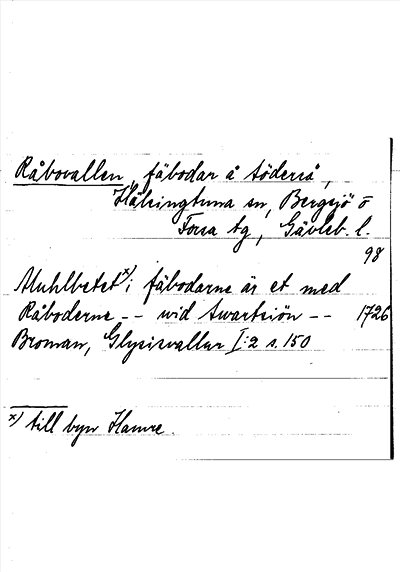 Råbovallen, fäbodar å Söderså,
Hälsingtuna sn, Bergsjö o
Forsa tg, Gävleb. l.
98
Muhlbetet x) i fäboderne är et med
Råboderne -- wid Swartsiön -- 1726
Broman, Glysisvallur I:2 s. 150
x) till byn Hamre.